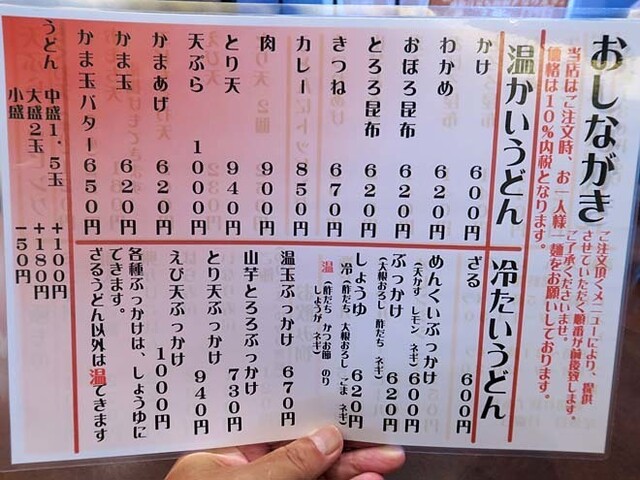 おしながき
当店はご注文時、お一人様一麺をお願いしております。
価格は10%内税となります。
ご注文頂くメニューにより、提供
させていただく順番が前後致します。
ご了承くださいませ。
温かいうどん
かけ 600円
わかめ 620円
おぼろ昆布 620円
とろろ昆布 620円
きつね 670円
カレー 850円
肉 900円
とり天 940円
天ぷら 1000円
かまあげ 620円
かま玉 620円
かま玉バター 650円
うどん 中盛1.5玉 +100円
大盛2玉 +180円
小盛 -50円
冷たいうどん
ざる 600円
めんくいぶっかけ 600円
(天かす レモン ネギ)
ぶっかけ 620円
(大根おろし 酢だち ネギ)
しょうゆ 620円
冷 (酢だち 大根おろし ごま ネギ)
温 (酢だち かつお節 のり
しょうが ネギ)
温玉ぶっかけ 670円
山芋とろろぶっかけ 730円
とり天ぶっかけ 940円
えび天ぶっかけ 1000円
各種ぶっかけは、しょうゆに
できます。
ざるうどん以外は温できます